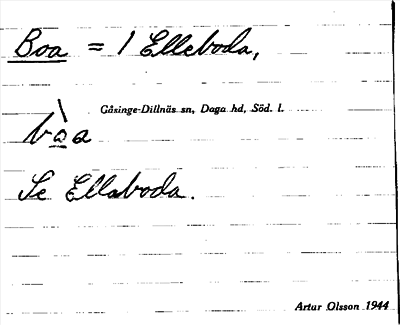 Boa = 1 Elleboda,
Gåsinge-Dillnäs sn, Daga hd, Söd. l.
bòa
Se Ellaboda.
Artur Olsson 1944